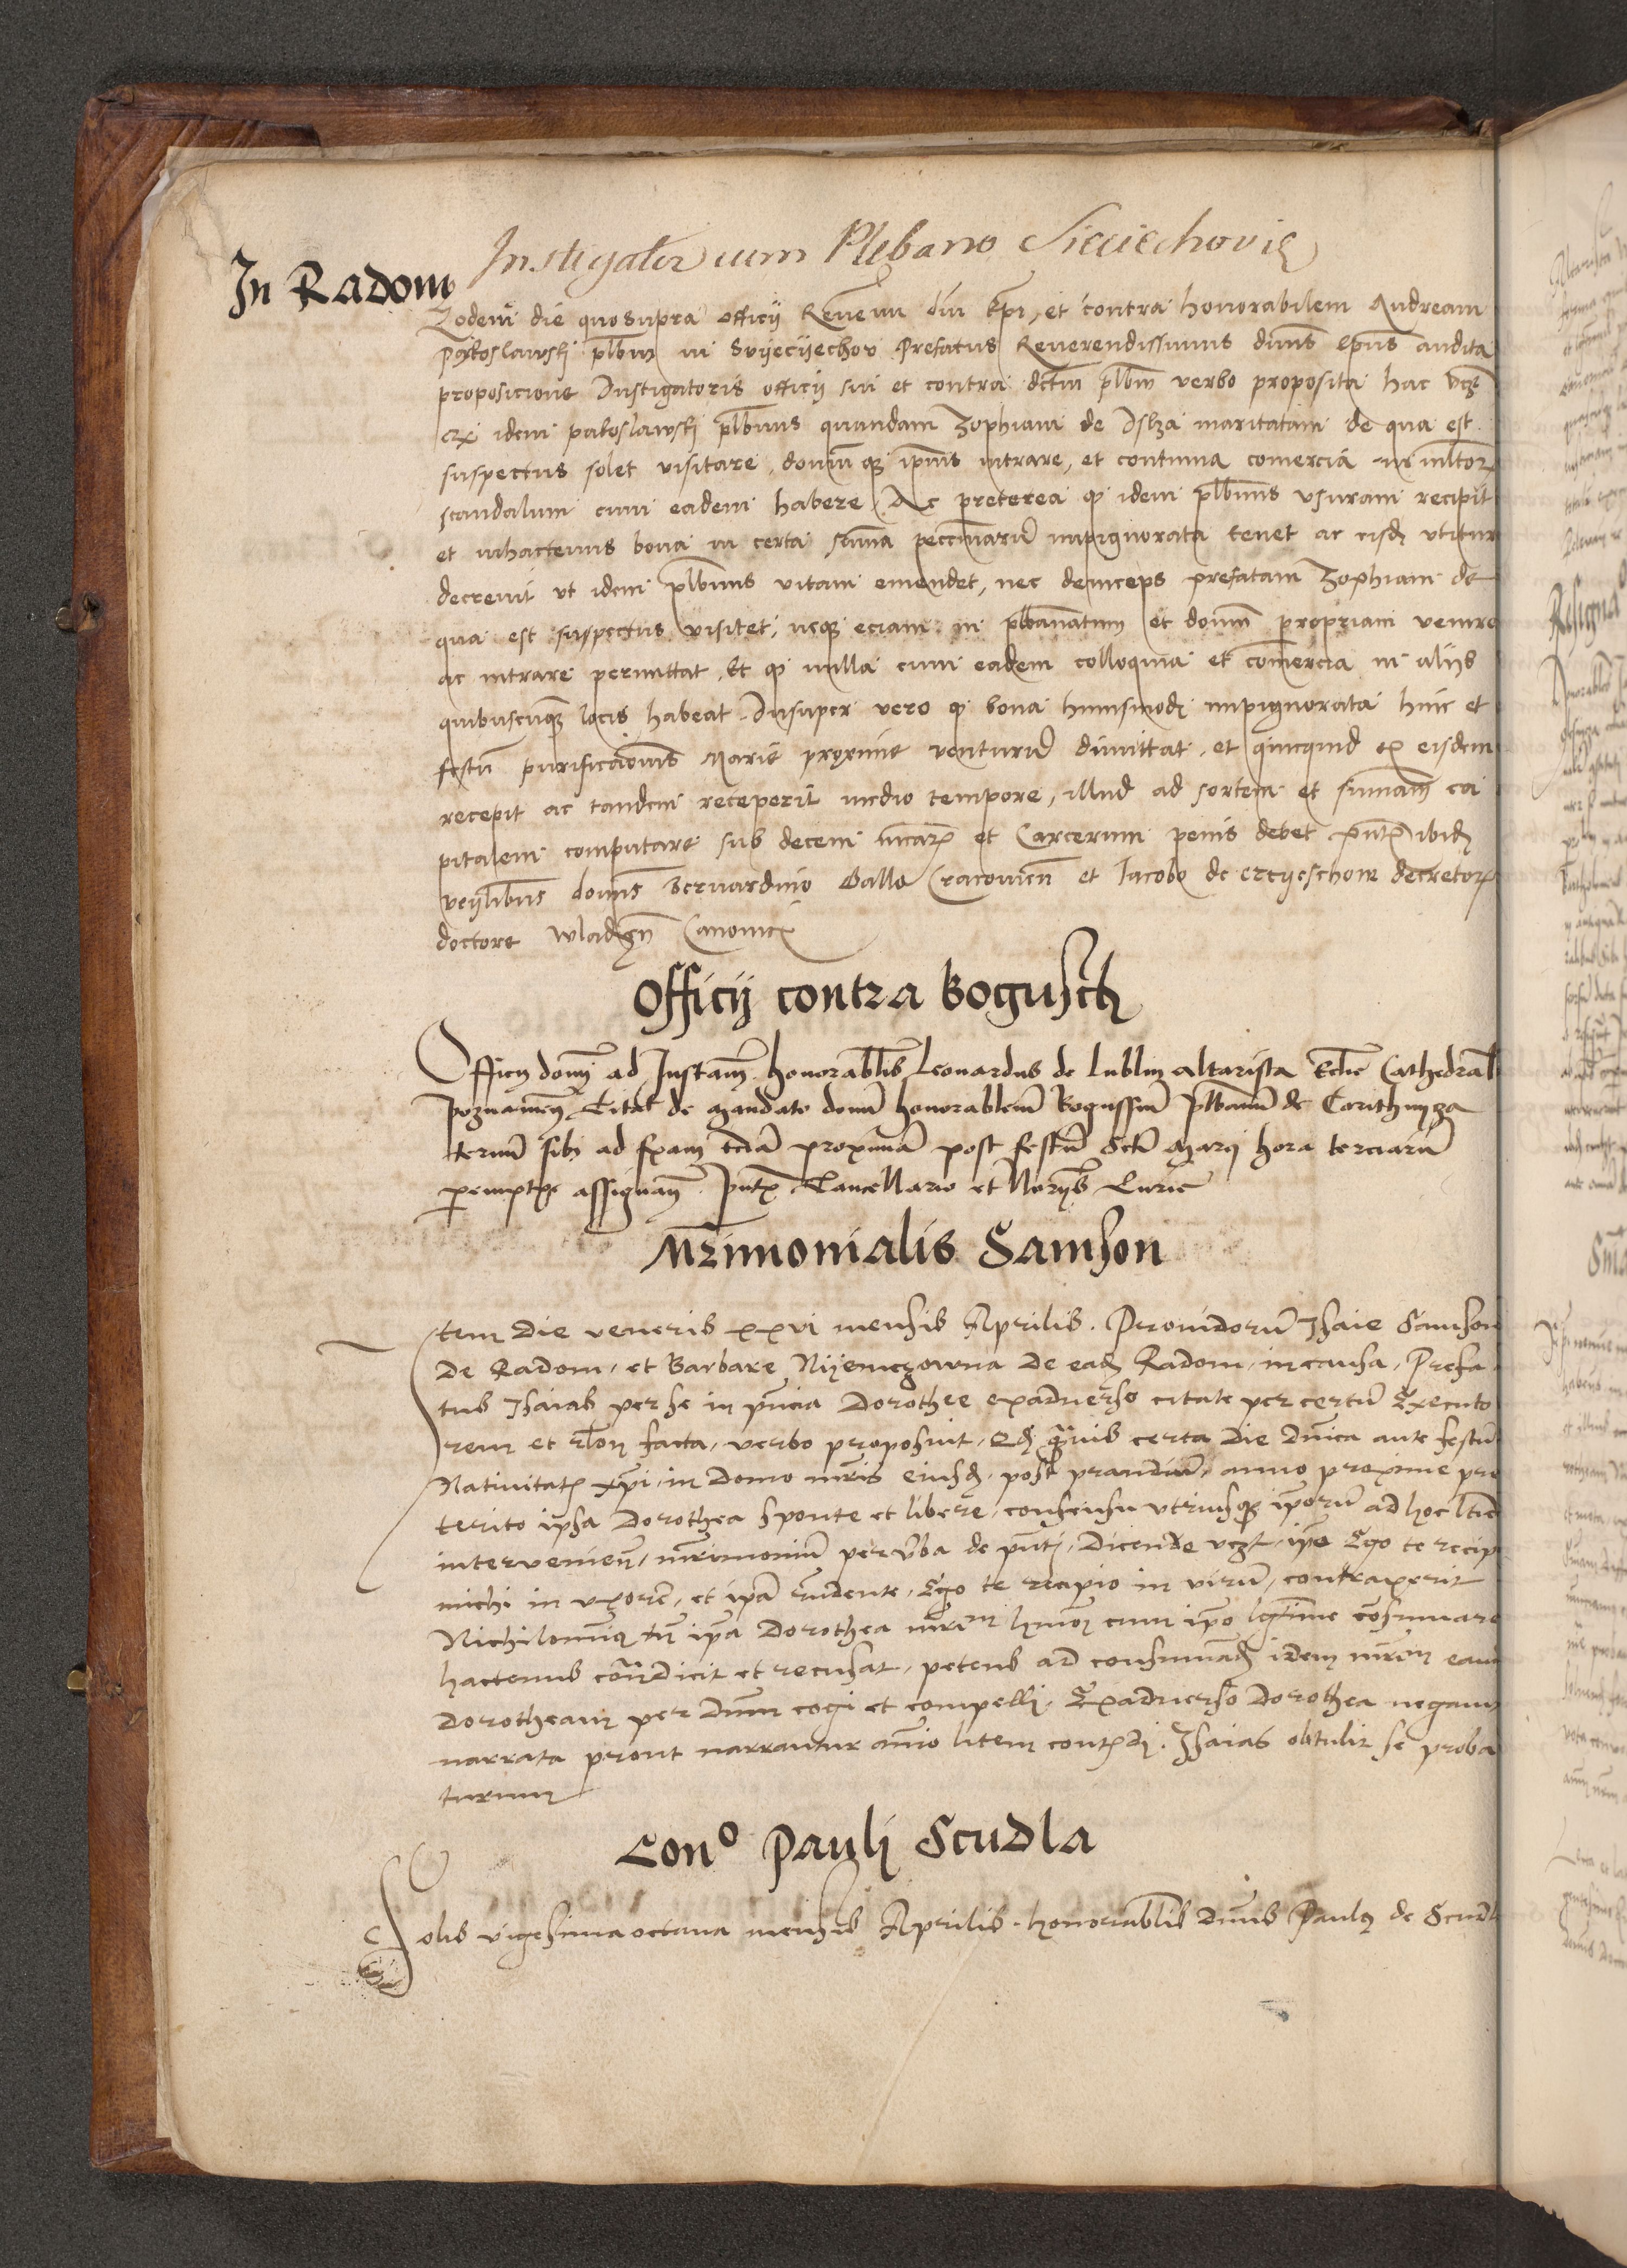 Instigator cum Plebano Sieciechovię
In Radom
Eodem die quo supra officij Reuerem dni Epi, et contra honorabilem Andream
pakoslawskj plbnm in Svijecijechov Prefatus Reuerendissimus dnns Epus audita
proposicione Instigatoris officij sui et contra dctm plbm verbo proposita hac vcz
idem pakoslawskj plbnus quandam Zophiam de Ilza maritatam de qua est
suspectus solet visitare, domm qz ipius intrare, et continua comercia in mltor
scandalum cum eadem habere Ac preterea qz idem plbnus vsuram recipit
et inhactenus bona in certa suma peccuniaru impignorata tenet ac eisd vtitur
decreuit vt idem plbnus vitam emendet, nec deinceps prefatam Zophiam de
qua est suspectus visitet, neqz eciam in plbanatum et domm propriam venire
ac intrare permittat, Et qz nulla cum eadem colloquia et comercia in alijs
quibuscuqz locis habeat Insuper vero qz bona huiusmodj impignorata hinc et
festu purificacionis Marie proxime venturu dimittat, et quicquid ex eisdem
recepit ac tandem receperit medio tempore, illud ad sortem et sumam ca
pitalem computare sub decem mcar et Carcerum penis debet pntr ibid
vejlibus domis Bernardino Gallo Cracouien et Iacobo de erczeschow decretor
doctore wladzn Canonics
Officij contra Bogusch
Officij domj ad Instam honorablis Leonardus de Lublin altarista Eclie Cathedral
poznamen Citat de mandato domi honorablem Bogussm plbanu de Corithnyza
termm sibi ad fxam tcia proxima post festu Scti Marcj hora terciaru
peremptre assignam pntr Cancellario et Norijs Curie
Mrimonialis Samson
Item die veneris xxvi mensis Aprilis. Prouidoru Isaie Samson
de Radom, et Barbare Nijemczowna de ead Radom, in causa, Prefa
tus Isaias per se in pncia Dorothee exaduerso citate per certu Executo
rem et rlon facta, verbo proposuit, Qd quis certa die dnica ante festu
Natiuitatis xpi, in domo mris eiusd, post prandiu, anno proxime pre
terito ipsa Dorothea sponte et libere, consensu vtriusqz iporu ad hoc ltie
interuenien, mrimoniu per vba de pnti, dicendo vczt, ipe Ego te recip
michi in vxore, et ipa rndente, Ego te recipio in viru, contraxerit
Nichilominus tn ipa Dorothea mrim hmoi cum ipo lgitime cosumare
hactenus cotradicit et recusat, petens ad consumad idem mrim eam
Dorotheam per dnm cogi et compelli, Exaduerso Dorothea negauit
narrata prout narrantur animo litem contdi. Isaias obtulit se proba
turum
Conº Pauli Scudla
Solis vigesima octaua mensis Aprilis. honorablis dnus Paulus de Scudl